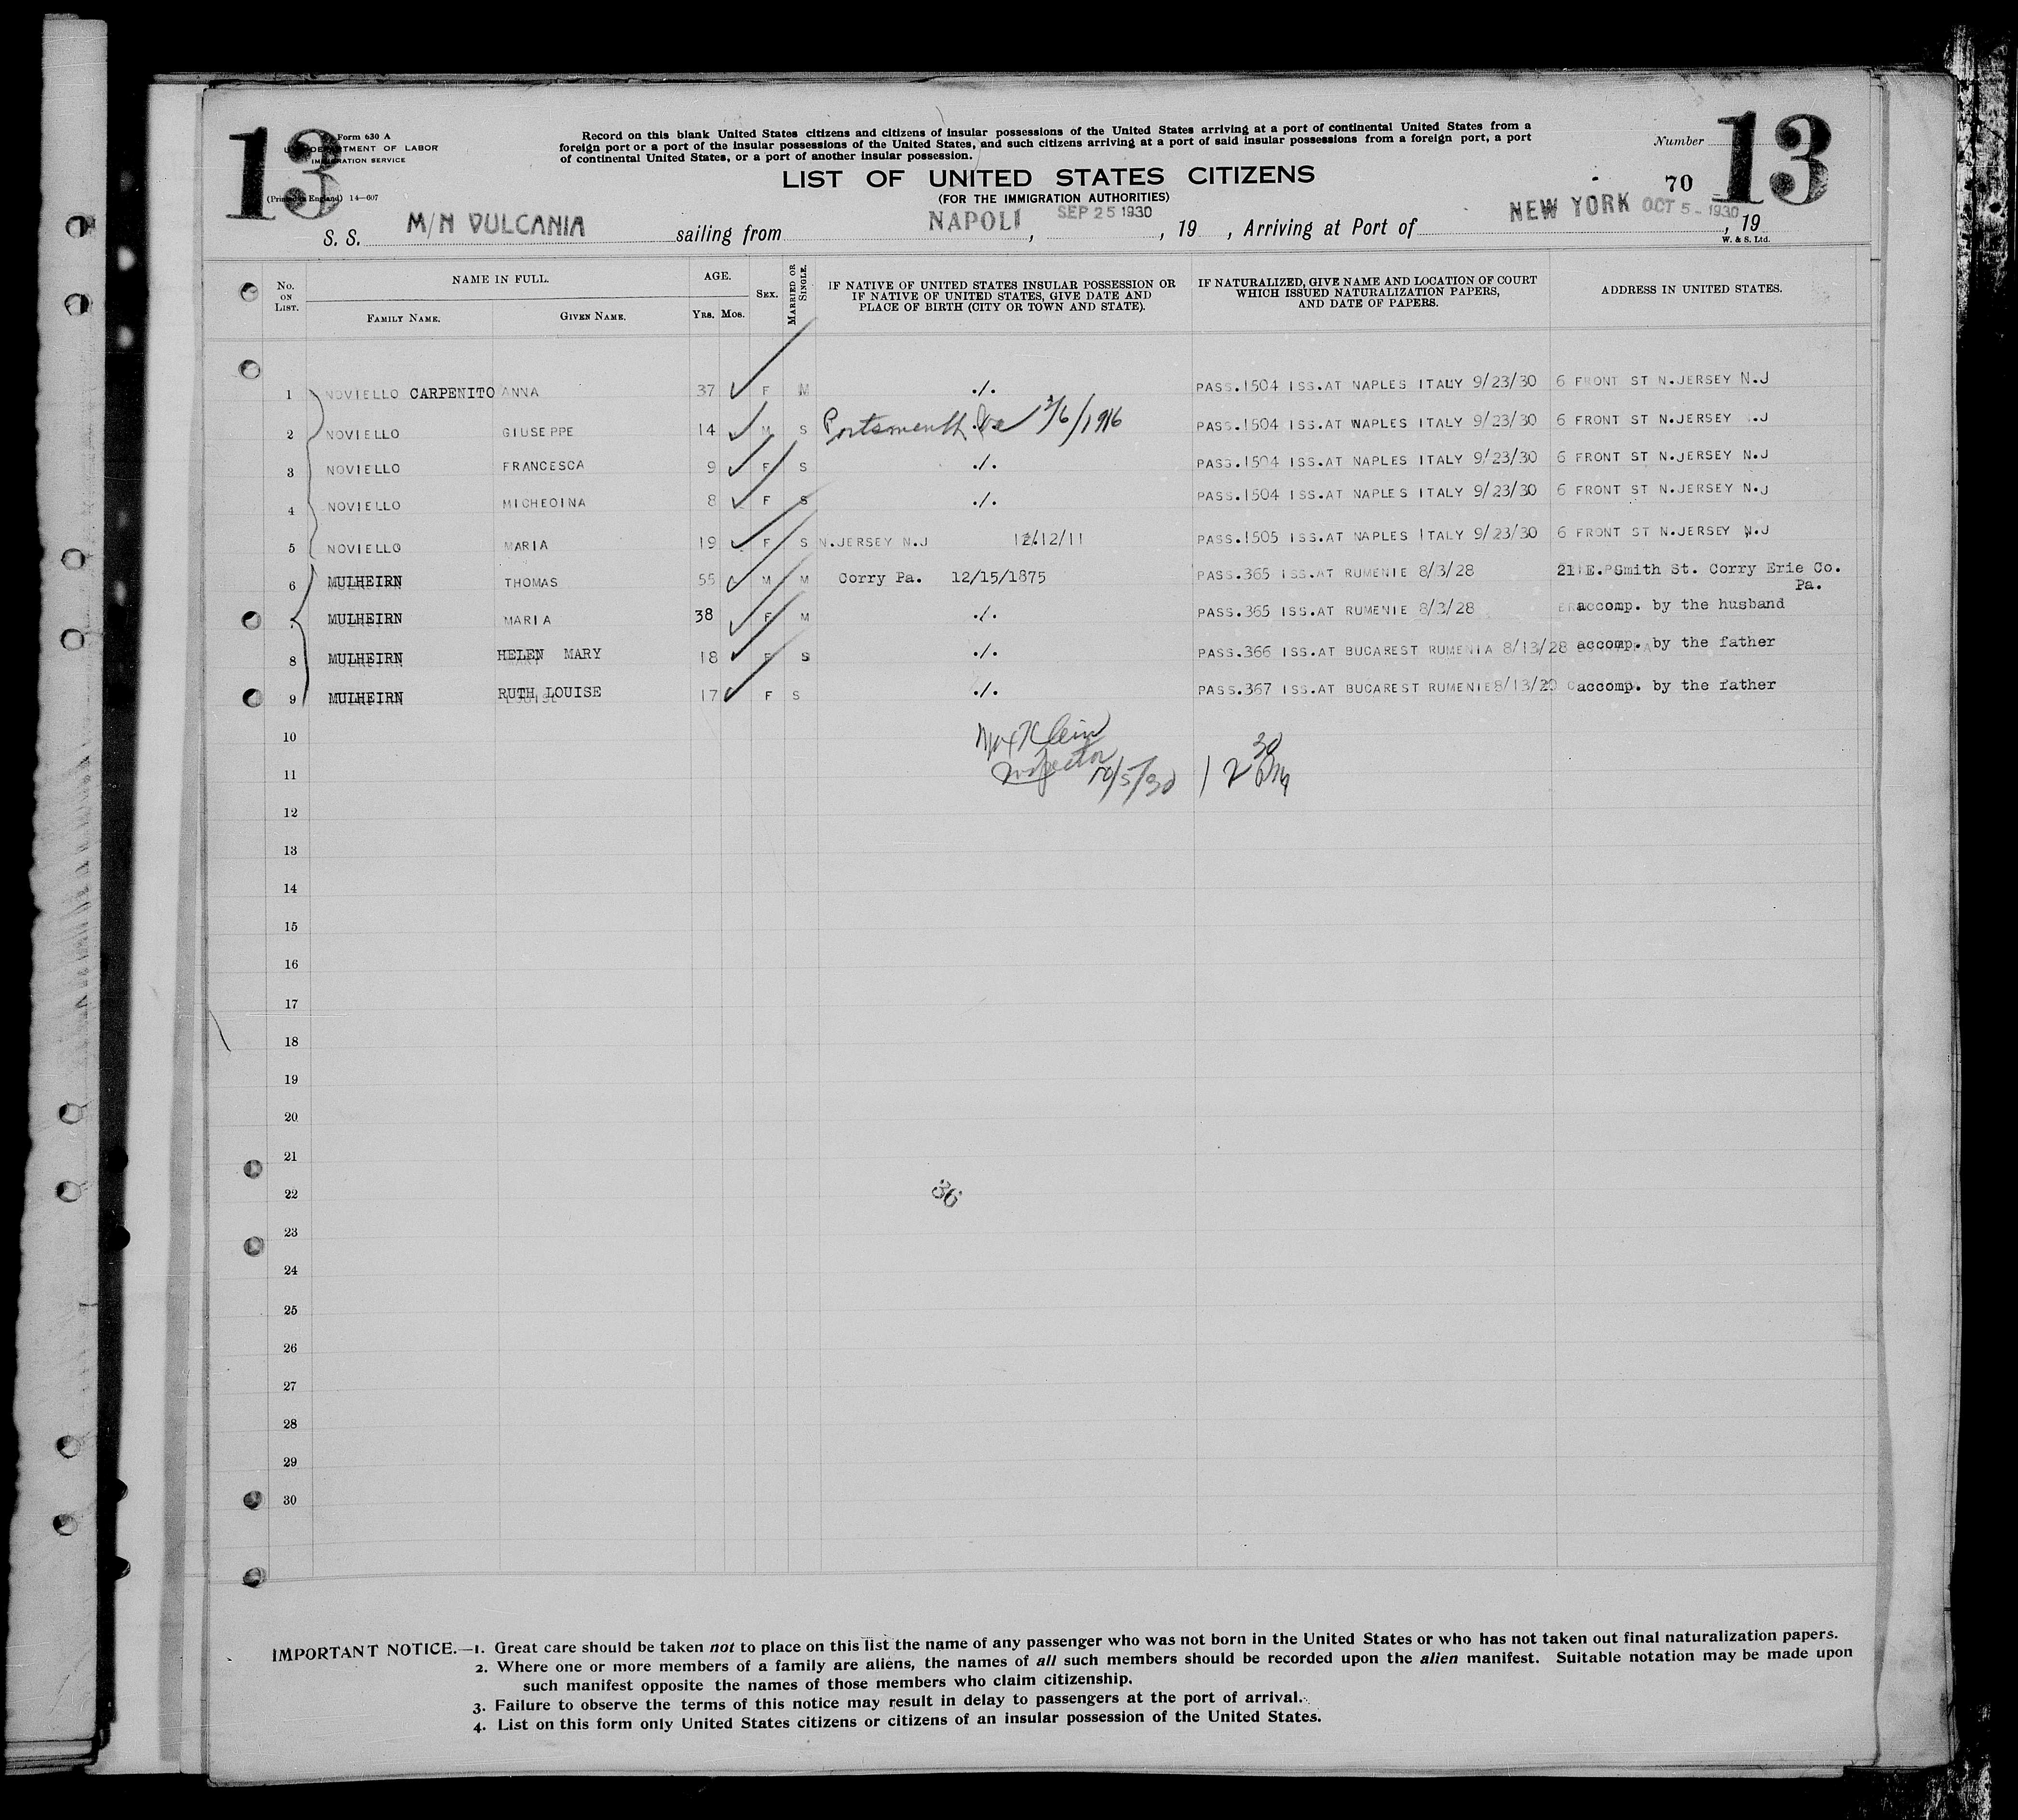 13
Form 630 A
U. S. DEPARTMENT OF LABOR
IMMIGRATION SERVICE
(Printed in England) 14—607
Record on this blank United States citizens and citizens of insular possessions of the United States arriving at a port of continental United States from a
foreign port or a port of the insular possessions of the United States, and such citizens arriving at a port of said insular possessions from a foreign port, a port
of continental United States, or a port of another insular possession.
Number 13
LIST OF UNITED STATES CITIZENS
(FOR THE IMMIGRATION AUTHORITIES)
70
S. S. M/N VULCANIA sailing from NAPOLI, SEP 25 1930, 19 , Arriving at Port of NEW YORK OCT 5 - 1930, 19
W. & S. Ltd.
No. ON LIST. NAME IN FULL. FAMILY NAME. GIVEN NAME. AGE. YRS. MOS. SEX. MARRIED OR SINGLE. IF NATIVE OF UNITED STATES INSULAR POSSESSION OR IF NATIVE OF UNITED STATES, GIVE DATE AND PLACE OF BIRTH (CITY OR TOWN AND STATE). IF NATURALIZED, GIVE NAME AND LOCATION OF COURT WHICH ISSUED NATURALIZATION PAPERS, AND DATE OF PAPERS. ADDRESS IN UNITED STATES.
1 NOVIELLO CARPENITO ANNA 37 F M ./. PASS.1504 ISS.AT NAPLES ITALY 9/23/30 6 FRONT ST N.JERSEY N.J
2 NOVIELLO GIUSEPPE 14 M S Portsmouth /6/1916 PASS.1504 ISS.AT NAPLES ITALY 9/23/30 6 FRONT ST N.JERSEY .J
3 NOVIELLO FRANCESCA 9 F S ./. PASS.1504 ISS.AT NAPLES ITALY 9/23/30 6 FRONT ST N.JERSEY N.J
4 NOVIELLO MICHEOINA 8 F S ./. PASS.1504 ISS.AT NAPLES ITALY 9/23/30 6 FRONT ST N.JERSEY N.J
5 NOVIELLO MARIA 19 F S N.JERSEY N.J 12/12/11 PASS.1505 ISS.AT NAPLES ITALY 9/23/30 6 FRONT ST N.JERSEY N.J
6 MULHEIRN THOMAS 55 M M Corry Pa. 12/15/1875 PASS.365 ISS.AT RUMENIE 8/3/28 21 E. Smith St. Corry Erie Co.
Pa.
MULHEIRN MARIA 38 F M ./. PASS.365 ISS.AT RUMENIE 8/3/28 accomp. by the husband
8 MULHEIRN HELEN MARY 18 F S ./. PASS.366 ISS.AT BUCAREST RUMENIA 8/13/28 accomp. by the father
9 MULHEIRN RUTH LOUISE 17 F S ./. PASS.367 ISS.AT BUCAREST RUMENIE 8/13/20 accomp. by the father
10
Max Klein
11
Inspector 10/5/30 12 30 PM
12
13
14
15
16
17
18
19
20
21
22
36
23
24
25
26
27
28
29
30
IMPORTANT NOTICE.—1. Great care should be taken not to place on this list the name of any passenger who was not born in the United States or who has not taken out final naturalization papers.
2. Where one or more members of a family are aliens, the names of all such members should be recorded upon the alien manifest. Suitable notation may be made upon
such manifest opposite the names of those members who claim citizenship.
3. Failure to observe the terms of this notice may result in delay to passengers at the port of arrival.
4. List on this form only United States citizens or citizens of an insular possession of the United States.